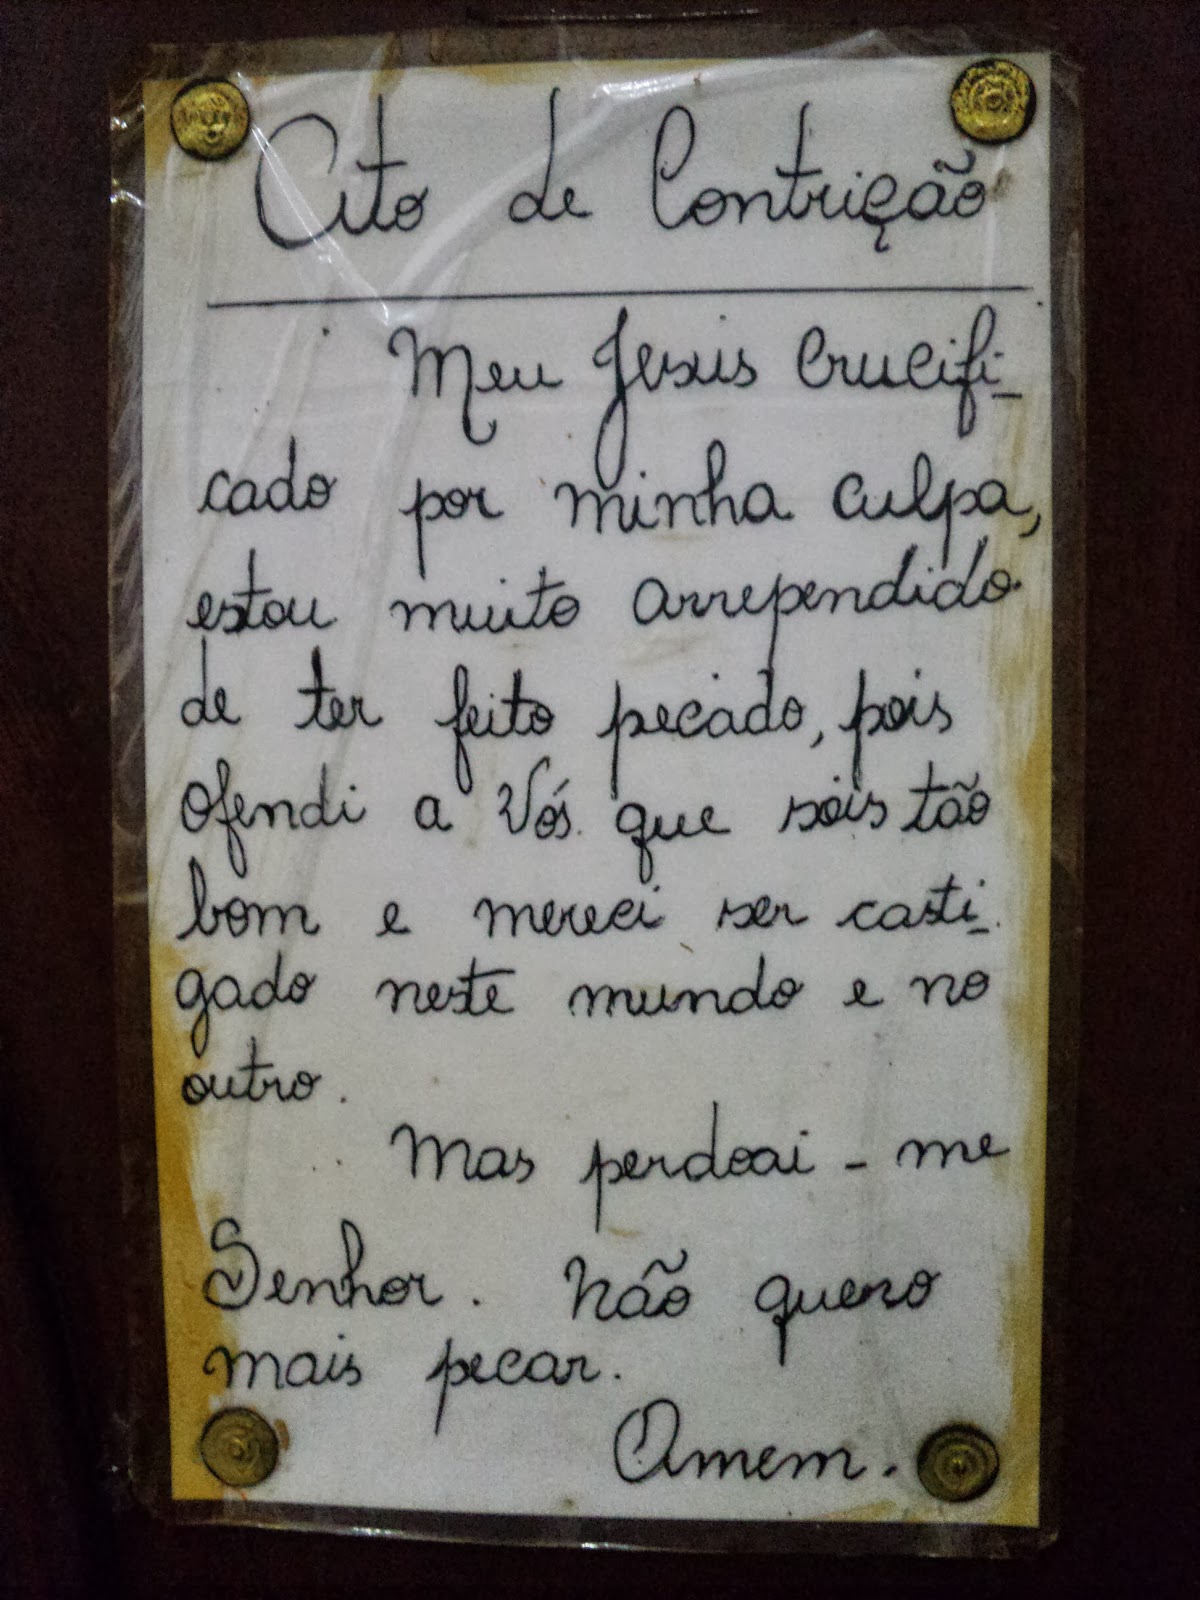 Ato de Contrição
Meu Jesus crucifi-
cado por minha culpa,
estou muito arrependido
de ter feito pecado, pois
ofendi a Vós que sois tão
bom e mereci ser casti-
gado neste mundo e no
outro.
Mas perdoai-me
Senhor. Não quero
mais pecar.
Amem.